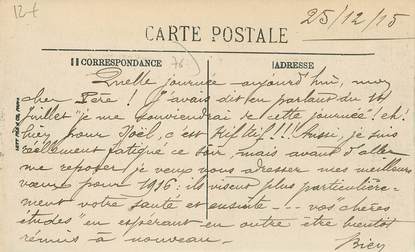 12 f
25/12/15
CARTE POSTALE
CORRESPONDANCE
ADRESSE
Quelle journée aujourd'hui, mon
cher Père ! J'avais dit en parlant du 14
Juillet "je me souviendrai de cette journée! eh!
bien, pour Noël, c'est Kif Kif!!! Aussi, je suis
réellement fatigué ce soir, mais avant d'aller
me reposer je veux vous adresser mes meilleurs
vœux pour 1916: ils visent plus particulière-
ment votre santé et ensuite --- vos "chères
études" en espérant en outre être bientôt
réunis à nouveau.